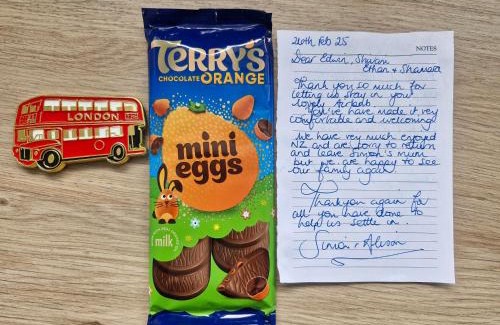 LONDON
TERRY'S
CHOCOLATE ORANGE
mini
eggs
milk
NOTES
26th Feb 25
Dear Edwin,
Ethan &
Thank you so much for
letting us stay in your
lovely Airbnb.
You've have made it very
comfortable and welcoming!
We have very much enjoyed
NZ and are sorry to return
and leave Simon's mum
but we are happy to see
our family again.
Thankyou again for
all you have done to
help us settle in.
Simon & Alison